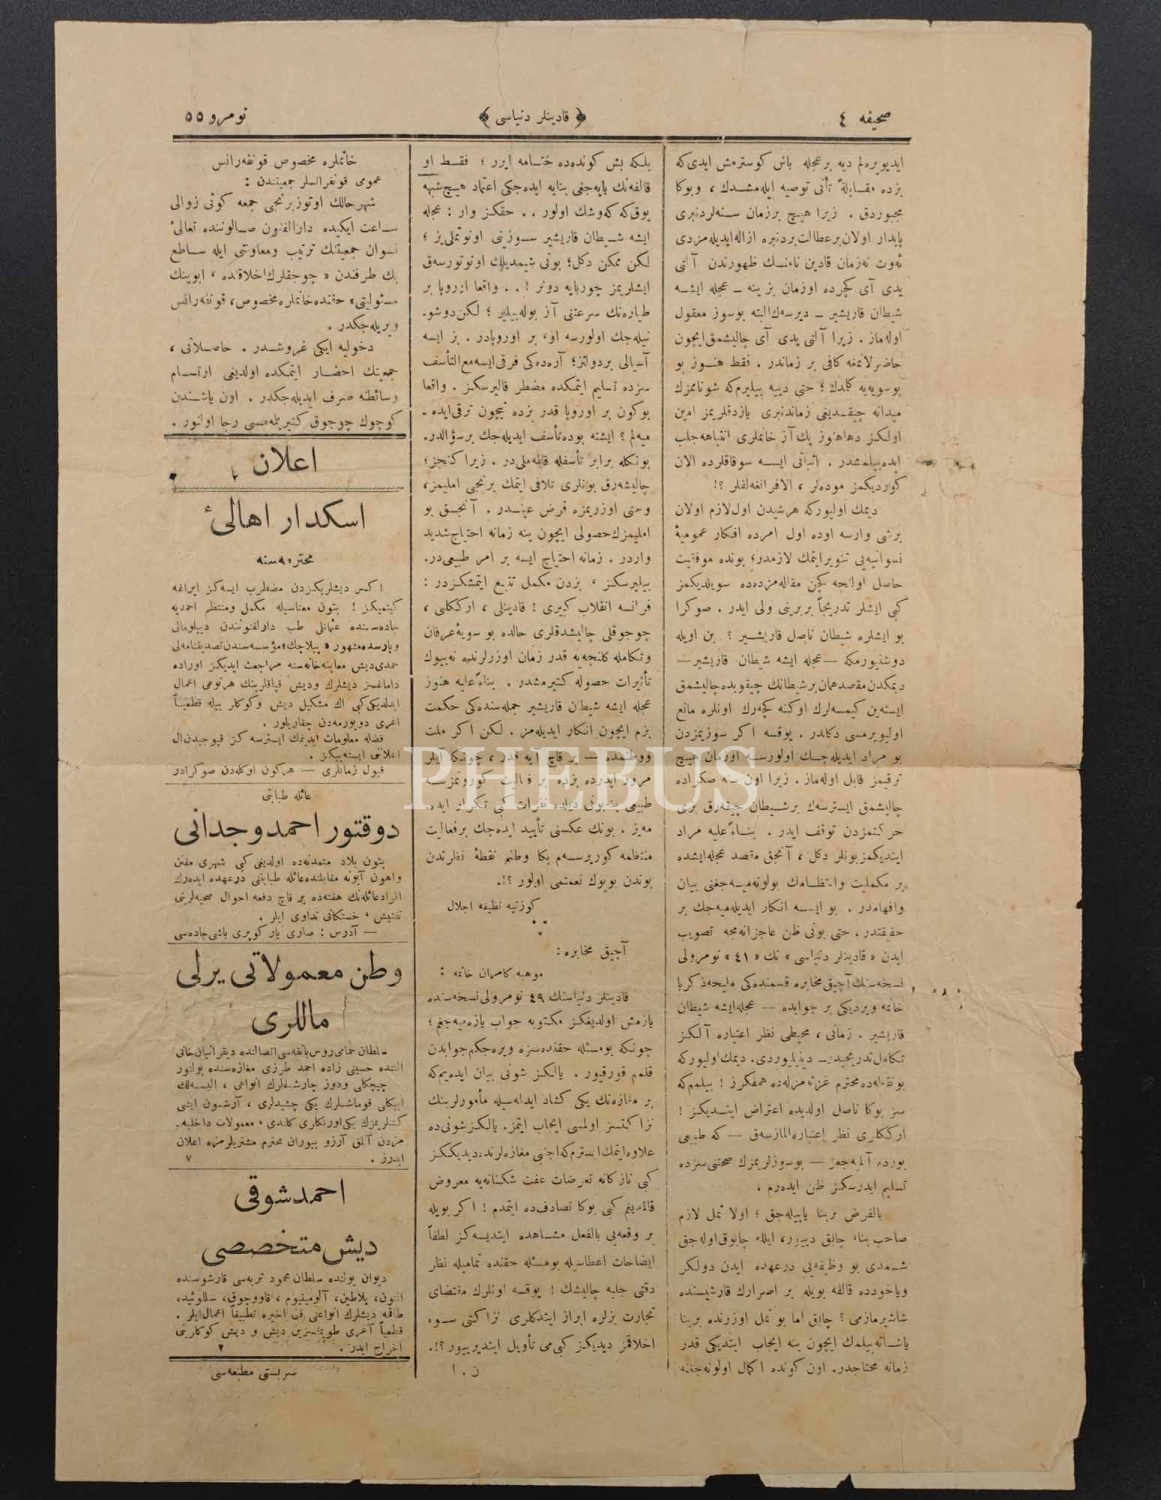 صحیفه ٤
قادینلر دنیاسی
نومرو ٥٥
ایدیویره‌لم دیه بر عجله باش کوسترمش ایدی که
بزده مقابلة تأنی توصیه ایله‌مشدك ، وبوکا
مجبوردق . زیرا هیچ برزمان سنه‌لردنبری
پایدار اولان بر عطالت بردنبره ازاله ایدیله‌مزدی
یدی آی کچرده اوزمان بز ینه — عجله ایشه
شیطان قاریشیر — دیرسه‌ك البته بوسوز معقول
اوله‌ماز . زیرا آلتی یدی آی چالیشمق ایچون
حاضرلانمغه کافی بر زماندر . فقط هنوز بو
میدانه چیقدیغی زماندنبری یازدقلریمز امین
اولکز دها هنوز پك آز خانملری انتباهه جلب
ایده‌بیلمشدر . اثباتی ایسه سوقاقلرده الان
کوردیکمز موده‌لر ، الافرانغه‌لقلر ؟!
دیمك اولیورکه هرشیدن اول لازم اولان
برشی وارسه اوده اول امرده افکار عمومیهٔ
نسوانیه‌یی تنویر ایتمك لازمدر؛ بونده موفقیت
حاصل اولنجه کچن مقاله‌مزده‌ده سویلدیکمز
کبی ایشلر تدریجاً بربرینی ولی ایدر . صوکرا
بو ایشلره شیطان ناصل قاریشیر ؟ بن اویله
دوشنیورم‌که — عجله ایشه شیطان قاریشیر —
دیمکدن مقصد همان بر شیطانك چیقوبده چالیشمق
ایسته‌ین کیمسه‌لرك اوکنه کچه‌رك اونلره مانع
اولیویرمسی دکلدر . یوقسه اکر سوزیمزدن
بو مراد ایدیله‌جك اولورسه اوزمان هیچ
ترقیمز قابل اوله‌ماز . زیرا اون سنه صکراده
چالیشمق ایسترسه‌ك بر شیطان چیقه‌رق بزی
حرکتمزدن توقف ایدر . بناءً علیه مراد
ایتدیکمز بونلر دکل ، آنجق مقصد عجله ایشده
بر مکملیت وانتظامك بولونه‌میه‌جغنی بیان
وافهامدر . بو ایسه انکار ایدیله‌میه‌جك بر
حقیقتدر . حتی بونی ظن عاجزانه‌مجه تصویب
ایدن « قادینلر دنیاسی » نك « ٤١ » نومرولی
نسخه‌سنك آچیق مخابره قسمنده‌کی ملیحه ذکریا
خانمه ویردیکی بر جوابده — عجله ایشه شیطان
قاریشیر . زمانی ، محیطی نظر اعتباره آلکز
تکامل تدریجیدر — دینیلیوردی. دیمك اولیورکه
سز بوکا ناصل اولدیده اعتراض ایتدیکز !
بورده آلمیه‌جغز — بوسوزلریمزك صحتنی سزده
تسلیم ایدرسکز ظن ایدرم .
بالفرض بربنا یاپیله‌جق ؛ اولا تمل لازم
زمانه محتاجدر. اون کونده اکمال اولونه‌جغنه
بلکه بش کونده‌ده ختامه ایرر ؛ فقط او
یوق که که‌وشك اولور . . حقکز وار : عجله
ایشه شیطان قاریشیر سوزینی اونوتملی‌یز ؛
لکن ممکن دکل؛ بونی شیمدیلك اونوتورسه‌ق
ایشلریمز چوربایه دونر ! . . واقعا اوروپا بر
طیاره‌نك سرعتنی آز بوله‌بیلیر ؛ لکن دوشو-
آسیالی بردولتز؛ آره‌ده‌کی فرقی ایسه مع التأسف
سزده تسلیم ایتمکده مضطر قالیرسکز . واقعا
بوکون بر اوروپا قدر بزده نیچون ترقی ایده -
میه‌لم ؟ ایشته بوده تأسف ایدیله‌جك بر سؤالدر.
بونکله برابر تأسفله قالمه‌ملی‌در . زیرا کنجز؛
چالیشه‌رق بونلری تلافی ایتمك برنجی املیمز،
وحتی اوزریمزه فرض عیندر . آنجق بو
املیمزك حصولی ایچون ینه زمانه احتیاج شدید
واردر . زمانه احتیاج ایسه بر امر طبیعی‌در.
بیلیرسکز ، بزدن مکمل تتبع ایتمشکزدر :
فرانسه انقلاب کبیری ! قادینلی ، ارککلی ،
چوجوقلی چالیشدقلری حالده بو سویهٔ عرفان
وتکامله کلنجه‌یه قدر زمان اوزرلرنده نه‌بیوك
تأثیرات حصوله کتیرمشدر . بناءً علیه هنوز
عجله ایشه شیطان قاریشیر جمله‌سنده‌کی حکمت
بزم ایچون انکار ایدیله‌مز . لکن اکر ملت
PHEBUS
میه‌یز . بونك عکسنی تأیید ایده‌جك بر فعالیت
منتظمه کوریرسه‌م بکا وطنم نقطهٔ نظرندن
بوندن بویوك نعمتمی اولور ؟!.
کوزتپه نظیفه اجلال
آچیق مخابره:
موهبه کامران خانمه :
قادینلر دنیاسنك ٤٩ نومرولی نسخه‌سنده
یازمش اولدیغکز مکتوبه جواب یازه‌میه‌جغم؛
چونکه بومسئله حقنده سزه ویره‌جکم جوابدن
قلمم قورقیور . یالکز شونی بیان ایده‌یم‌که
بر مغازه‌نك یکی کشاد ایدلمسیله مأمورلرینك
نزاکتسز اولمسی ایجاب ایتمز. یالکز شونی‌ده
علاوه ایتمك ایسترم‌که اجنبی مغازه‌لرنده دیدیککز
کبی نازکانه تعرضات عفت شکنانه‌یه معروض
بر وقعه‌یی بالفعل مشاهده ایتدیسه‌کز لطفاً
ایضاحات اعطاسیله بومسئله حقنده تمامیله نظر
دقتی جلبه چالیشك ! یوقسه اونلرك مقتضای
تجارت بزلره ابراز ایتدکلری نزاکتی سوء
اخلاقمز دیدیکز کبی‌می تأویل ایتدیرییور ؟!.
ن . ا
خانملره مخصوص قونفه‌رانس
عمومی قونفرانسلر جمعیتندن :
شهر حالك اوتوز برنجی جمعه کونی زوالی
ساعت ایکیده دارالفنون صالوننده تعالیٔ
نسوان جمعیتنك ترتیب ومعاونتی ایله ساطع
بك طرفندن « چوجقلرك اخلاقنده ، ابوینك
مسئولیتی» حقنده خانملره مخصوص، قونفه‌رانس
ویریله‌جکدر .
دخولیه ایکی غروشدر . حاصلاتی ،
جمعیتك احضار ایتمکده اولدیغی ارتسام
وسائطنه صرف ایدیله‌جکدر . اون یاشندن
کوچوك چوجوق کتیریلمه‌مسی رجا اولنور .
اعلان
اسکدار اهالیٔ
محترمه‌سنه
اکر دیشلریکزدن مضطرب ایسه‌کز ایراغه
کیتمیکز ! بتون معناسیله مکمل ومنتظم احمدیه
جاده‌سنده عثمانلی طب دارالفنونندن دیپلومالی
حمدی دیش معاینه‌خانه‌سنه مراجعت ایدیکز اوراده
داماغسز دیشلرك ودیش قیاقلرینك هرنوعی اعمال
ایدلدیکی کبی اك مشکیل دیش وکوکلر بیله قطعیاً
اغری دویورمه‌دن چقاریلور .
فضله معلومات ایدینمك ایسترسه‌کز قپوجیدن ال
اعلانی ایسته‌ییکز .
قبول زمانلری — هرکون اوکله‌دن صوکرادر
عائله طبابتی
دوقتور احمد وجدانی
بتون بلاد متمدنه‌ده اولدیغی کبی شهری مقنن
واهون آبونه مقابلنده عائله طبابتنی درعهده ایده‌رك
افراد عائله‌نك هفته‌ده بر قاچ دفعه احوال صحیه‌لرینی
تفتیش ، خستکانی تداوی ایلر .
— آدرس : صاری یار کوپری باشی جاده‌سی
وطن معمولاتی یرلی
ماللری
سلطان حمامی روس بانقه‌سی اتصالنده دیقرانیان خانی
التنده حسینی زاده احمد طرزی مغازه‌سنده بولنور
چیچکلی ودوز چارشفلرك انواعی ، البسه‌لك
ایپکلی قوماشلرك یکی چشیدلری ، آرشون ایشی
مزدن آلمق آرزو بیوران محترم مشتریلرمزه اعلان
ایدرز . ٧
احمد شوقی
دیش متخصصی
دیوان یولنده سلطان محمود تربه‌سی قارشوسنده
التون، پلاطین، آلومینیوم ، قاووچوق، سللوئید،
طاقمه دیشلرك انواعنی فن اخیره تطبیقاً اعمال ایلر .
قطعیاً آغری طویماسزین دیش و دیش کوکلرینی
اخراج ایدر . ٢
سربستی مطبعه‌سی